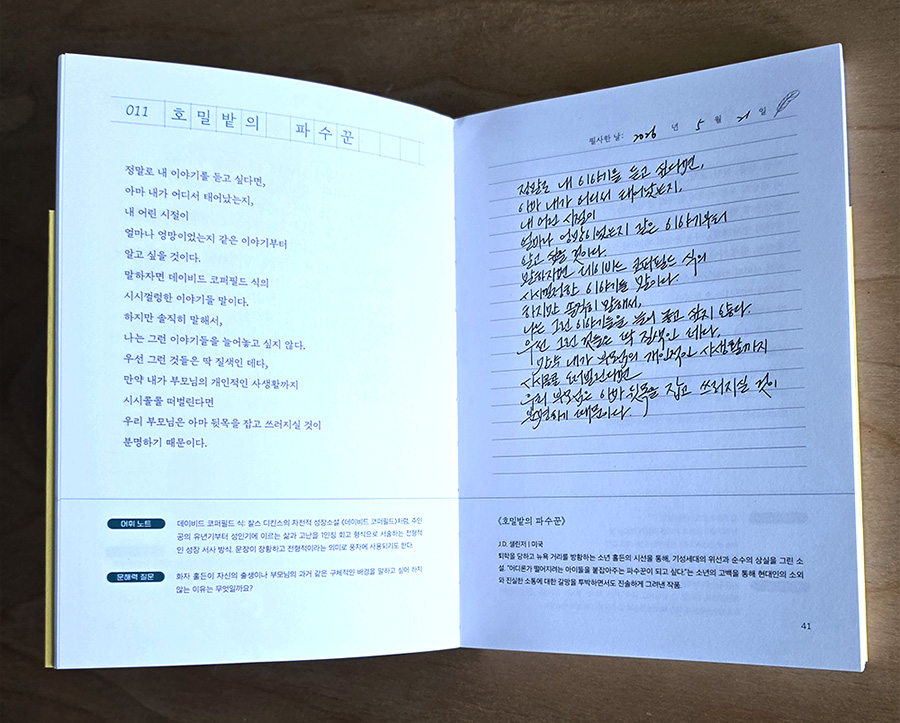 011 호밀밭의 파수꾼
정말로 내 이야기를 듣고 싶다면,
아마 내가 어디서 태어났는지,
내 어린 시절이
얼마나 엉망이었는지 같은 이야기부터
알고 싶을 것이다.
말하자면 데이비드 코퍼필드 식의
시시껄렁한 이야기들 말이다.
하지만 솔직히 말해서,
나는 그런 이야기들을 늘어놓고 싶지 않다.
우선 그런 것들은 딱 질색인 데다,
만약 내가 부모님의 개인적인 사생활까지
시시콜콜 떠벌린다면
우리 부모님은 아마 뒷목을 잡고 쓰러지실 것이
분명하기 때문이다.
어휘 노트
데이비드 코퍼필드 식: 찰스 디킨스의 자전적 성장소설 《데이비드 코퍼필드》처럼, 주인
공의 유년기부터 성인기에 이르는 삶과 고난을 1인칭 회고 형식으로 서술하는 전형적
인 성장 서사 방식. 문장이 장황하고 전형적이라는 의미로 풍자에 사용되기도 한다.
문해력 질문
화자 홀든이 자신의 출생이나 부모님의 과거 같은 구체적인 배경을 말하고 싶어 하지
않는 이유는 무엇일까요?
필사한 날: 2026 년 5 월 21 일
정말로 내 이야기를 듣고 싶다면,
아마 내가 어디서 태어났는지,
내 어린 시절이
얼마나 엉망이었는지 같은 이야기부터
알고 싶을 것이다.
말하자면 데이비드 코퍼필드 식의
시시껄렁한 이야기들 말이다.
하지만 솔직히 말해서,
나는 그런 이야기들을 늘어 놓고 싶지 않다.
우선 그런 것들은 딱 질색인 데다.
만약 내가 부모님의 개인적인 사생활까지
시시콜콜 떠벌린다면
우리 부모님은 아마 뒷목을 잡고 쓰러지실 것이
분명하기 때문이다.
《호밀밭의 파수꾼》
J.D. 샐린저 | 미국
퇴학을 당하고 뉴욕 거리를 방황하는 소년 홀든의 시선을 통해, 기성세대의 위선과 순수의 상실을 그린 소
설. "어디론가 떨어지려는 아이들을 붙잡아주는 파수꾼이 되고 싶다."는 소년의 고백을 통해 현대인의 소외
와 진실한 소통에 대한 갈망을 투박하면서도 진솔하게 그려낸 작품.
41